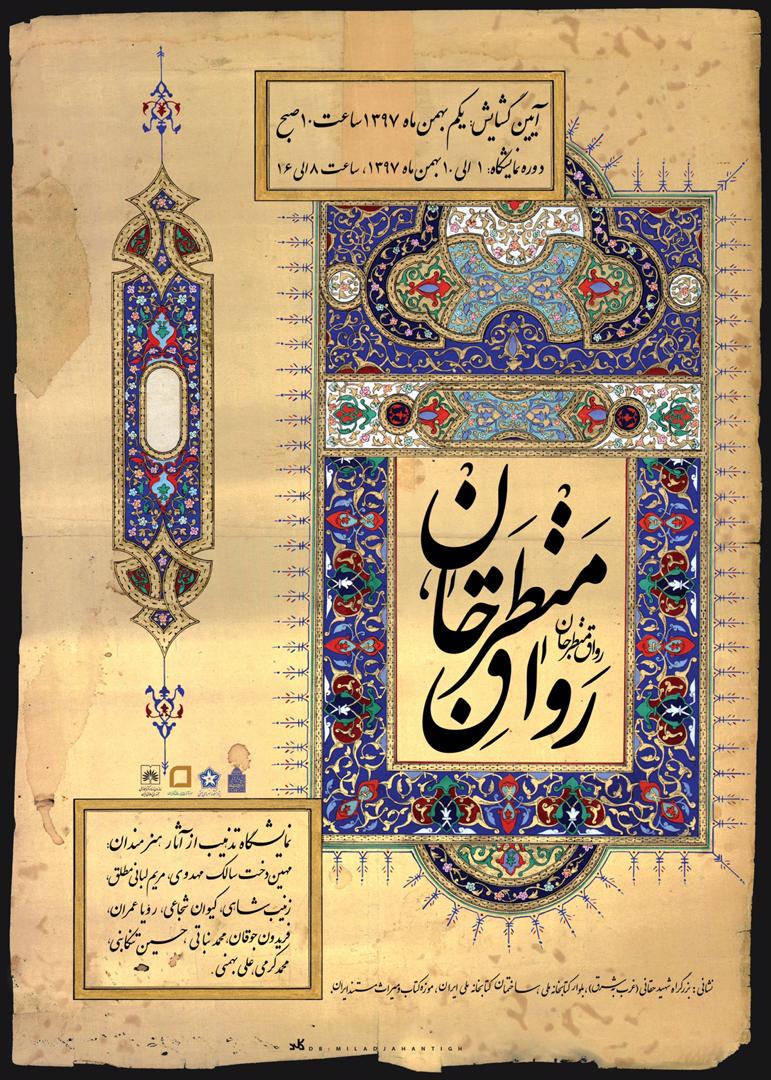 آیین گشایش: یکم بهمن ماه ۱۳۹۷ ساعت ۱۰ صبح
دوره نمایشگاه: ۱ الی ۱۰ بهمن ماه ۱۳۹۷، ساعت ۸ الی ۱۶
رواق منظر جان
رواق منظر جان
نمایشگاه تذهیب از آثار هنرمندان:
مهین‌دخت سالک مهدوی، مریم لبانی مطلق،
زینب شاهی، کیوان شجاعی، رویا عمران،
فریدون جوقان، محمد نباتی، حسین تنکابنی،
محمد کرمی، علی بهمنی.
نشانی: بزرگراه شهید حقانی (غرب به شرق)، بلوار کتابخانه ملی، ساختمان کتابخانه ملی ایران، موزه کتاب و میراث مستند ایران
DB: MILADJAHANTIGH